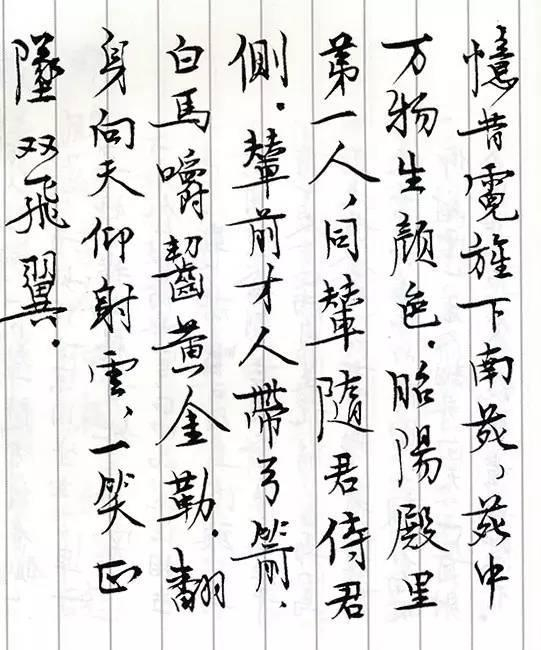 憶昔霓旌下南苑，苑中
万物生顔色．昭陽殿里
第一人，同輦隨君侍君
側．輦前才人帶弓箭．
白馬嚼齧黄金勒．翻
身向天仰射雲，一笑正
墜双飛翼．